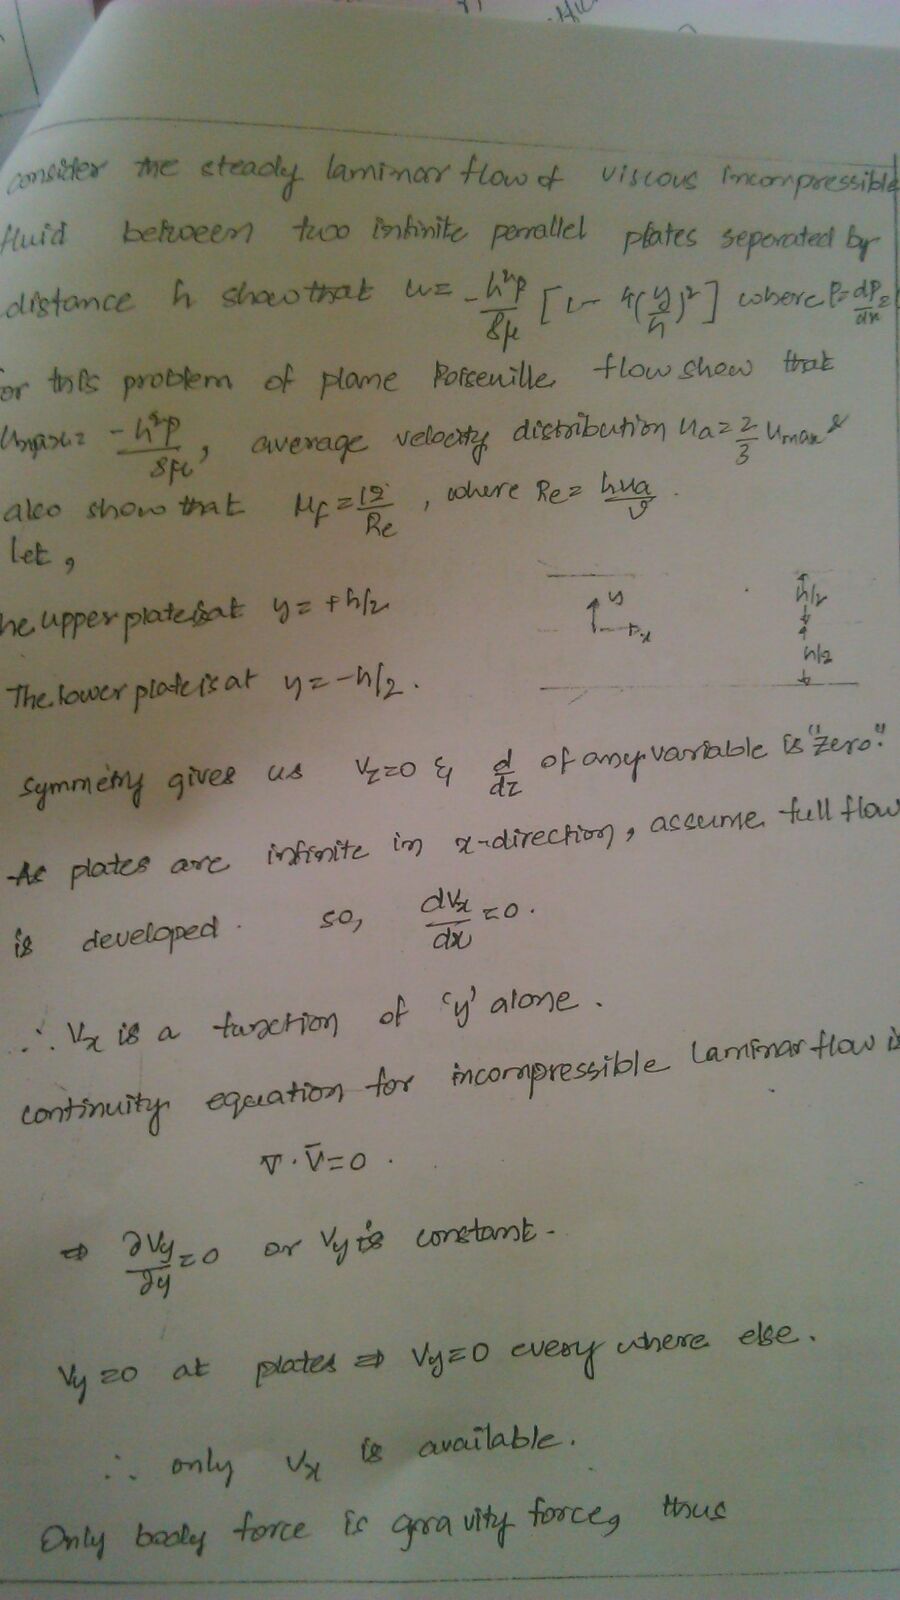 consider the steady laminar flow of viscous incompressible
fluid between two infinite parallel plates seperated by
distance h show that u = -h²P/8μ [1 - 4(y/h)²] where P = dP/dx =
or this problem of plane Poiseuille flow show that
Umax = -h²P/8μ, average velocity distribution ua = 2/3 umax &
also show that Mf = 12/Re, where Re = hua/ν.
let,
he upper plate is at y = +h/2
y
x
h/2
h/2
The lower plate is at y = -h/2.
symmetry gives us Vz=0 & d/dz of any variable is "zero".
As plates are infinite in x-direction, assume full flow
is developed. so, dVx/dx = 0.
∴ Vx is a function of 'y' alone.
continuity equation for incompressible laminar flow is
∇·V̄=0.
⇒ ∂Vy/∂y = 0 or Vy is constant.
Vy = 0 at plates ⇒ Vy=0 every where else.
∴ only Vx is available.
Only body force is gravity force, thus